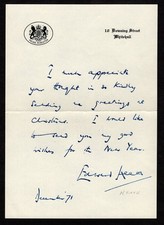 10 Downing Street
Whitehall
I much appreciate
your thought in so kindly
sending me greetings at
Christmas. I would like
to send you my good
wishes for the New Year.
Edward Heath
December '71